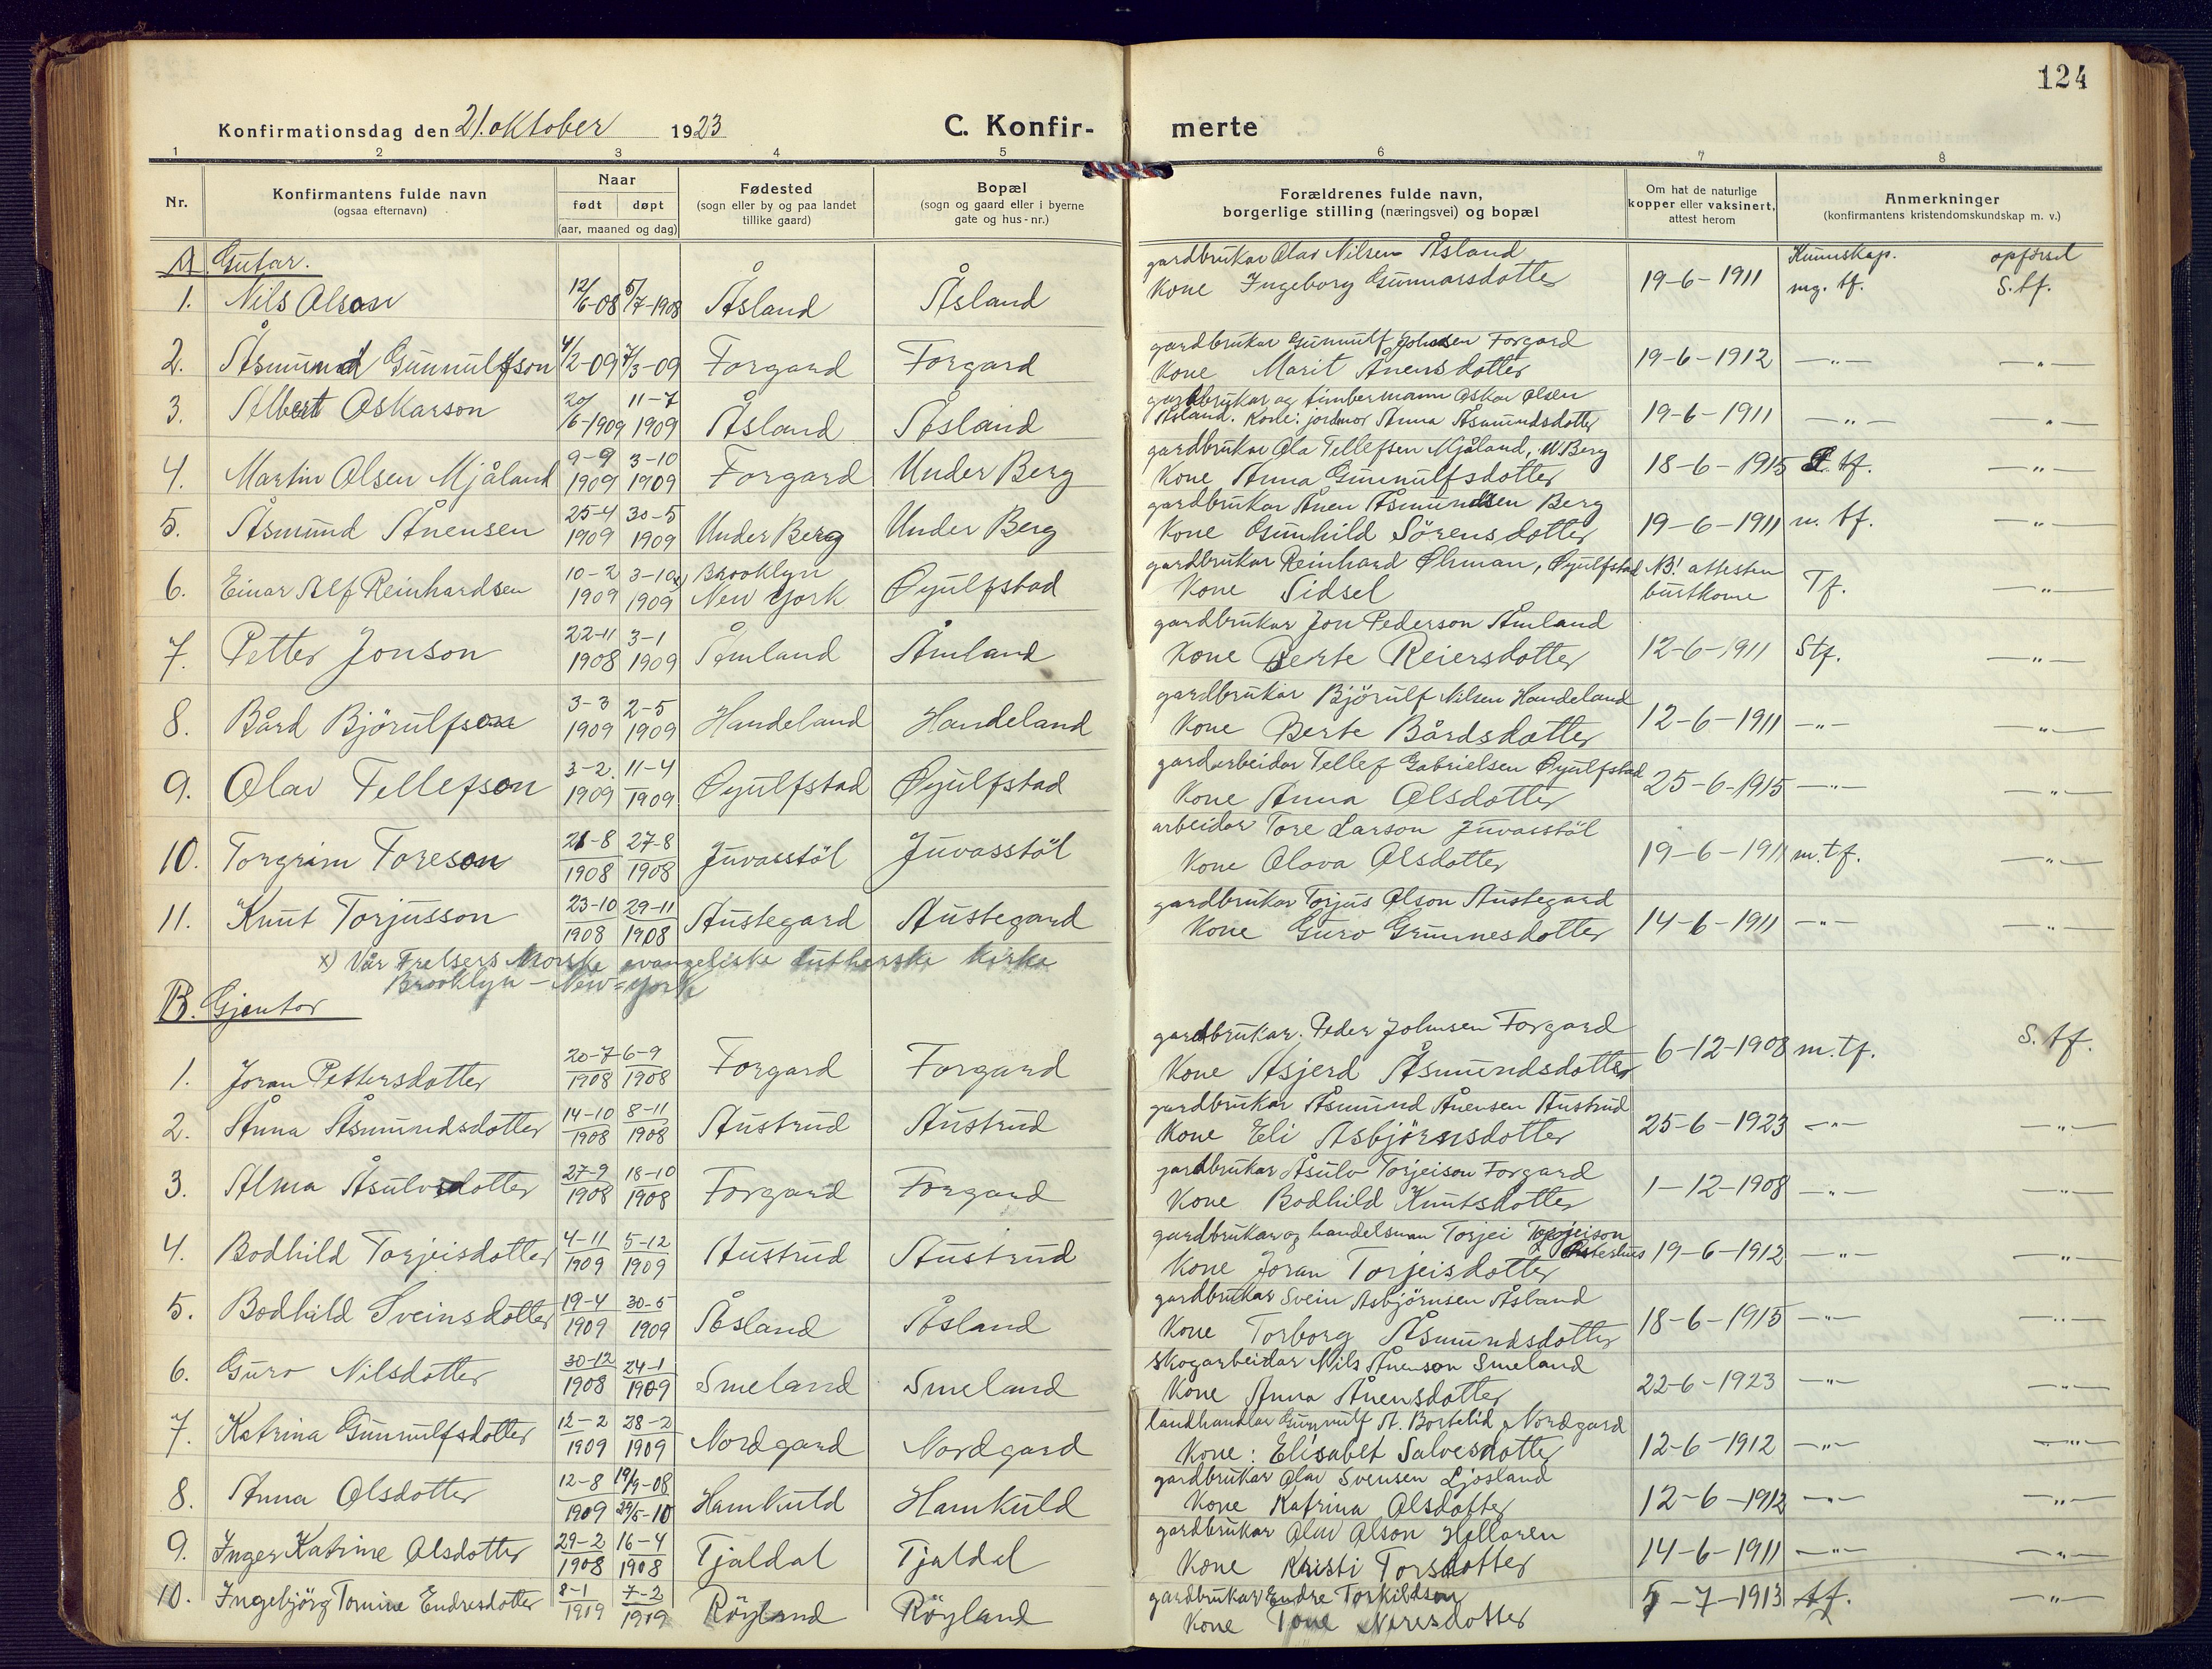 124
Konfirmationsdag den 21. oktober 1923 C. Konfir- merte
1 2 3 4 5 6 7 8
Nr. Konfirmantens fulde navn (ogsaa efternavn) Naar født døpt (aar, maaned og dag) Fødested (sogn eller by og paa landet tillike gaard) Bopæl (sogn og gaard eller i byerne gate og hus-nr.) Forældrenes fulde navn, borgerlige stilling (næringsvei) og bopæl Om hat de naturlige kopper eller vaksinert, attest herom Anmerkninger (konfirmantens kristendomskundskap m. v.)
A Gutar. gardbrukar Olav Nilsen Åsland Kunnskap. opførsel
1. Nils Olson 12/6-08 5/7-1908 Åsland Åsland Kone Ingeborg Gunnarsdotter 19-6-1911 mg. tf. S. tf.
gardbrukar Gunnulf Johnsen Forgard
2. Åsmund Gunnulfson 4/2-09 7/3-09 Forgard Forgard Kone Marit Ånensdotter 19-6-1912 —"— —"—
gardbrukar og timbermann Oskar Olsen
3. Albert Oskarson 20/6-1909 11-7 1909 Åsland Åsland Åsland. Kone: jordmor Anna Åsmundsdotter 19-6-1911 —"— "—
gardbrukar Ola Tellefsen Mjåland, U. Berg
4. Martin Olsen Mjåland 9-9 1909 3-10 1909 Forgard Under Berg Kone Anna Gunnulfsdotter 18-6-1915 tf. —"—
gardbrukar Ånen Åsmundsen Berg
5. Åsmund Ånensen 25-4 1909 30-5 1909 Under Berg Under Berg Kone Gunhild Sörensdotter 19-6-1911 m. tf. —"—
gardbrukar Reinhard Øhman, Øyulfstad NB! attesten
6. Einar Alf Reinhardsen 10-2 1909 3-10 x) 1909 Brooklyn New York Øyulfstad Kone Sidsel burtkome Tf. —"—
gardbrukar Jon Pederson Åmland
7. Petter Jonson 22-11 1908 3-1 1909 Åmland Åmland Kone Berte Reiersdotter 12-6-1911 Stf. —"—
gardbrukar Björulf Nilsen Handeland
8. Bård Björulfson 3-3 1909 2-5 1909 Handeland Handeland Kone Berte Bårdsdotter 12-6-1911 —"— "—
gardarbeidar Tellef Gabrielsen Øyulfstad
9. Olav Tellefson 3-2. 1909 11-4 1909 Øyulfstad Øyulfstad Kone Anna Olsdotter 25-6-1915 —"— —"—
arbeidar Tore Larson Juvasstöl
10. Torgrim Toreson 21-8 1908 27-8 1908 Juvasstöl Juvasstöl Kone Olava Olsdotter 19-6-1911 m. tf. —"—
gardbrukar Torjus Olson Austegard
11. Knut Torjusson 23-10 1908 29-11 1908 Austegard Austegard Kone Guro Gunnesdotter 14-6-1911 —"— —"—
x) Vår Frelsers Norske evangeliske lutherske kirke
Brooklyn - New=York
B. Gjentor
gardbrukar. Peder Johnsen Forgard
1. Joran Pettersdotter 20-7 1908 6-9 1908 Forgard Forgard Kone Asjerd Åsmundsdotter 6-12-1908 m. tf. S. tf.
gardbrukar Åsmund Ånensen Austrud
2. Anna Åsmundsdotter 14-10 1908 8-11 1908 Austrud Austrud Kone Eli Asbjörnsdotter 25-6-1923 —"— —"—
gardbrukar Åsulv Torjeison Forgard
3. Alma Åsulvsdotter 27-9 1908 18-10 1908 Forgard Forgard Kone Bodhild Knutsdotter 1-12-1908 —"— —"—
gardbrukar og handelsman Torjei Torjeison
4. Bodhild Torjeisdotter 4-11 1909 5-12 1909 Austrud Austrud Kone Joran Torjeisdotter 19-6-1912 —"— "
gardbrukar Svein Asbjörnsen Åsland
5. Bodhild Sveinsdotter 19-4 1909 30-5 1909 Åsland Åsland Kone Torborg Åsmundsdotter 18-6-1915 —"— —"—
skogarbeidar Nils Ånenson Smeland
6. Guro Nilsdotter 30-12 1908 24-1 1909 Smeland Smeland Kone Anna Ånensdotter 22-6-1923 —"— —"—
landhandlar Gunnulf A. Bortelid, Nordgard
7. Katrina Gunnulfsdotter 12-2 1909 28-2 1909 Nordgard Nordgard Kone: Elisabet Salvesdotter 12-6-1912 —"— —"—
gardbrukar Olav Svensen Ljosland
8. Anna Olsdotter 12-8 1909 19/9-08 29/5-10 Hamkuld Hamkuld Kone Katrina Olsdotter 12-6-1912 —"— —"—
gardbrukar Olav Olson Hellaren
9. Inger Katrine Olsdotter 29-2 1908 16-4 1908 Tjaldal Tjaldal Kone Kristi Torsdotter 14-6-1911 —"— —"—
gardbrukar Endre Torkildson
10. Ingebjörg Tomine Endresdotter 8-1 1909 7-2 1909 Röyland Röyland Kone Tone 5-7-1913 tf. —"—